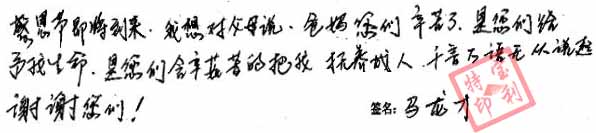 感恩节即将到来，我想对父母说，爸妈您们辛苦了，是您们给
予我生命，是您们含辛茹苦的把我抚养成人，千言万语无从说起
谢谢您们！ 签名：马龙才
特宝
印利